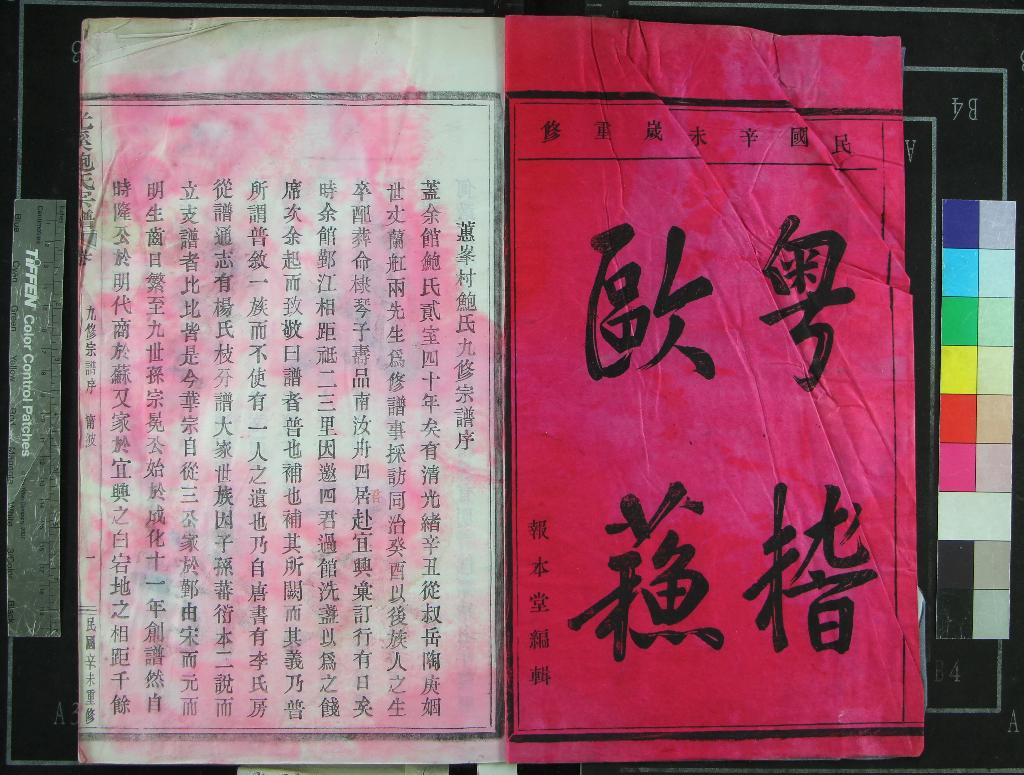 民國辛未歲重修
粵稽
歐蘓
報本堂編輯
蕙峯村鮑氏九修宗譜序
蓋余館鮑氏貳室四十年矣有清光緒辛丑從叔岳陶庚姻
世丈蘭舡兩先生爲修譜事採訪同治癸酉以後族人之生
卒配葬命棣琴子壽品南汝舟四君赴宜興彙訂行有日矣
時余館鄞江相距祗二三里因邀四君過館洗盞以爲之餞
席次余起而致敬曰譜者普也補也補其所闕而其義乃普
所謂普敘一族而不使有一人之遺也乃自唐書有李氏房
從譜通志有楊氏枝分譜大家世族因子孫蕃衍本二說而
立支譜者比比皆是今華宗自從三公家於鄞由宋而元而
明生齒日繁至九世孫宗冕公始於成化十一年創譜然自
時隆公於明代商於蘇又家於宜興之白宕地之相距千餘
鮑氏宗譜
九修宗譜序 甯波
一
民國辛未重修
TIFFEN Color Control Patches
B4
A
B4
A
A3